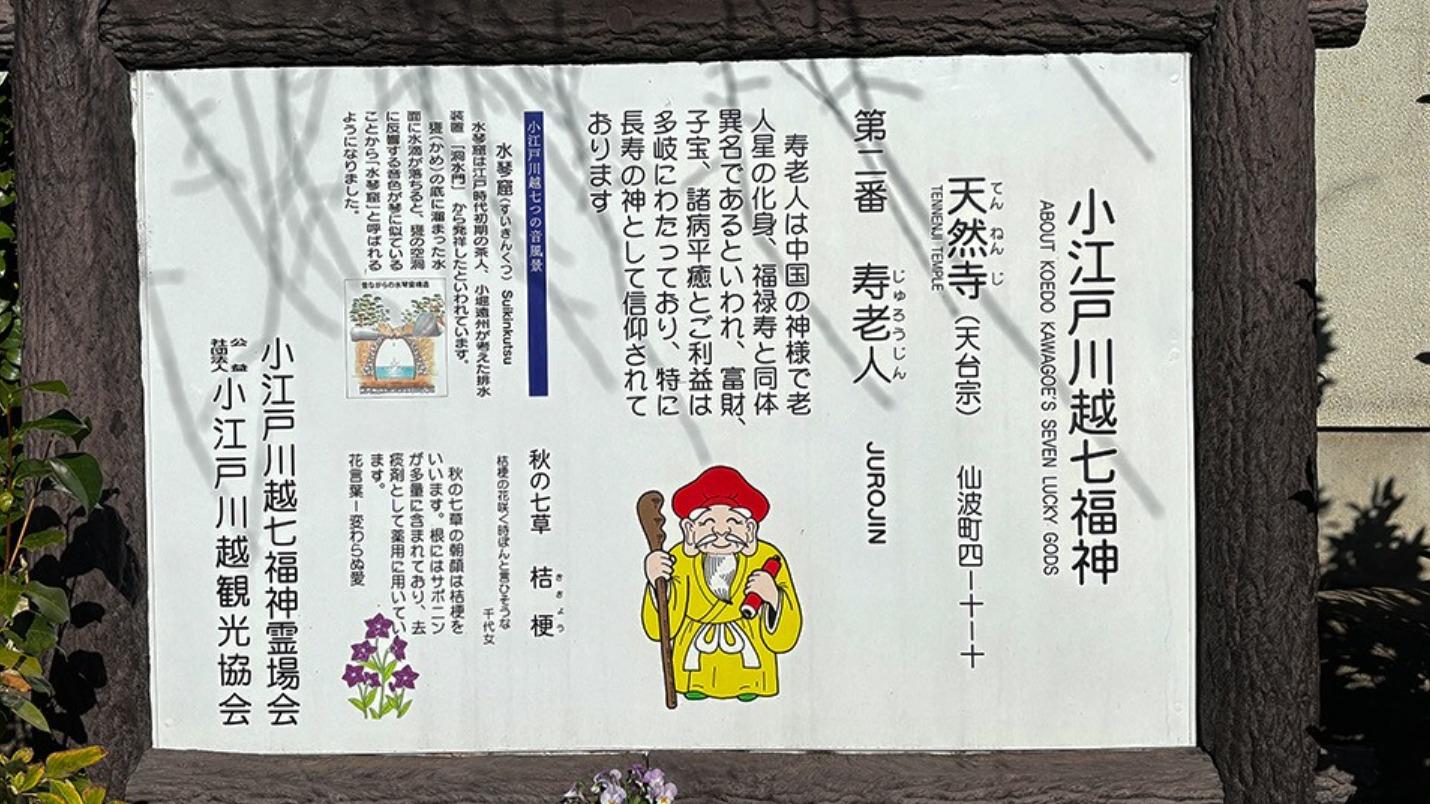 小江戸川越七福神
ABOUT KOEDO KAWAGOE'S SEVEN LUCKY GODS
てんねんじ
天然寺（天台宗） 仙波町四－十－十
TENNENJI TEMPLE
じゅろうじん
第二番 寿老人 JUROJIN
寿老人は中国の神様で老
人星の化身、福禄寿と同体
異名であるといわれ、富財、
子宝、諸病平癒とご利益は
多岐にわたっており、特に
長寿の神として信仰されて
おります
小江戸川越七つの音風景
水琴窟（すいきんくつ） Suikinkutsu
水琴窟は江戸時代初期の茶人、小堀遠州が考えた排水
装置「洞水門」から発祥したといわれています。
甕（かめ）の底に溜まった水
面に水滴が落ちると、甕の空洞
に反響する音色が琴に似ている
ことから「水琴窟」と呼ばれる
ようになりました。
昔ながらの水琴窟構造
ききょう
秋の七草 桔梗
桔梗の花咲く時ぽんと言ひそうな
千代女
秋の七草の朝顔は桔梗を
いいます。根にはサポニン
が多量に含まれており、去
痰剤として薬用に用いてい
ます。
花言葉ー変わらぬ愛
小江戸川越七福神霊場会
公益社団法人 小江戸川越観光協会